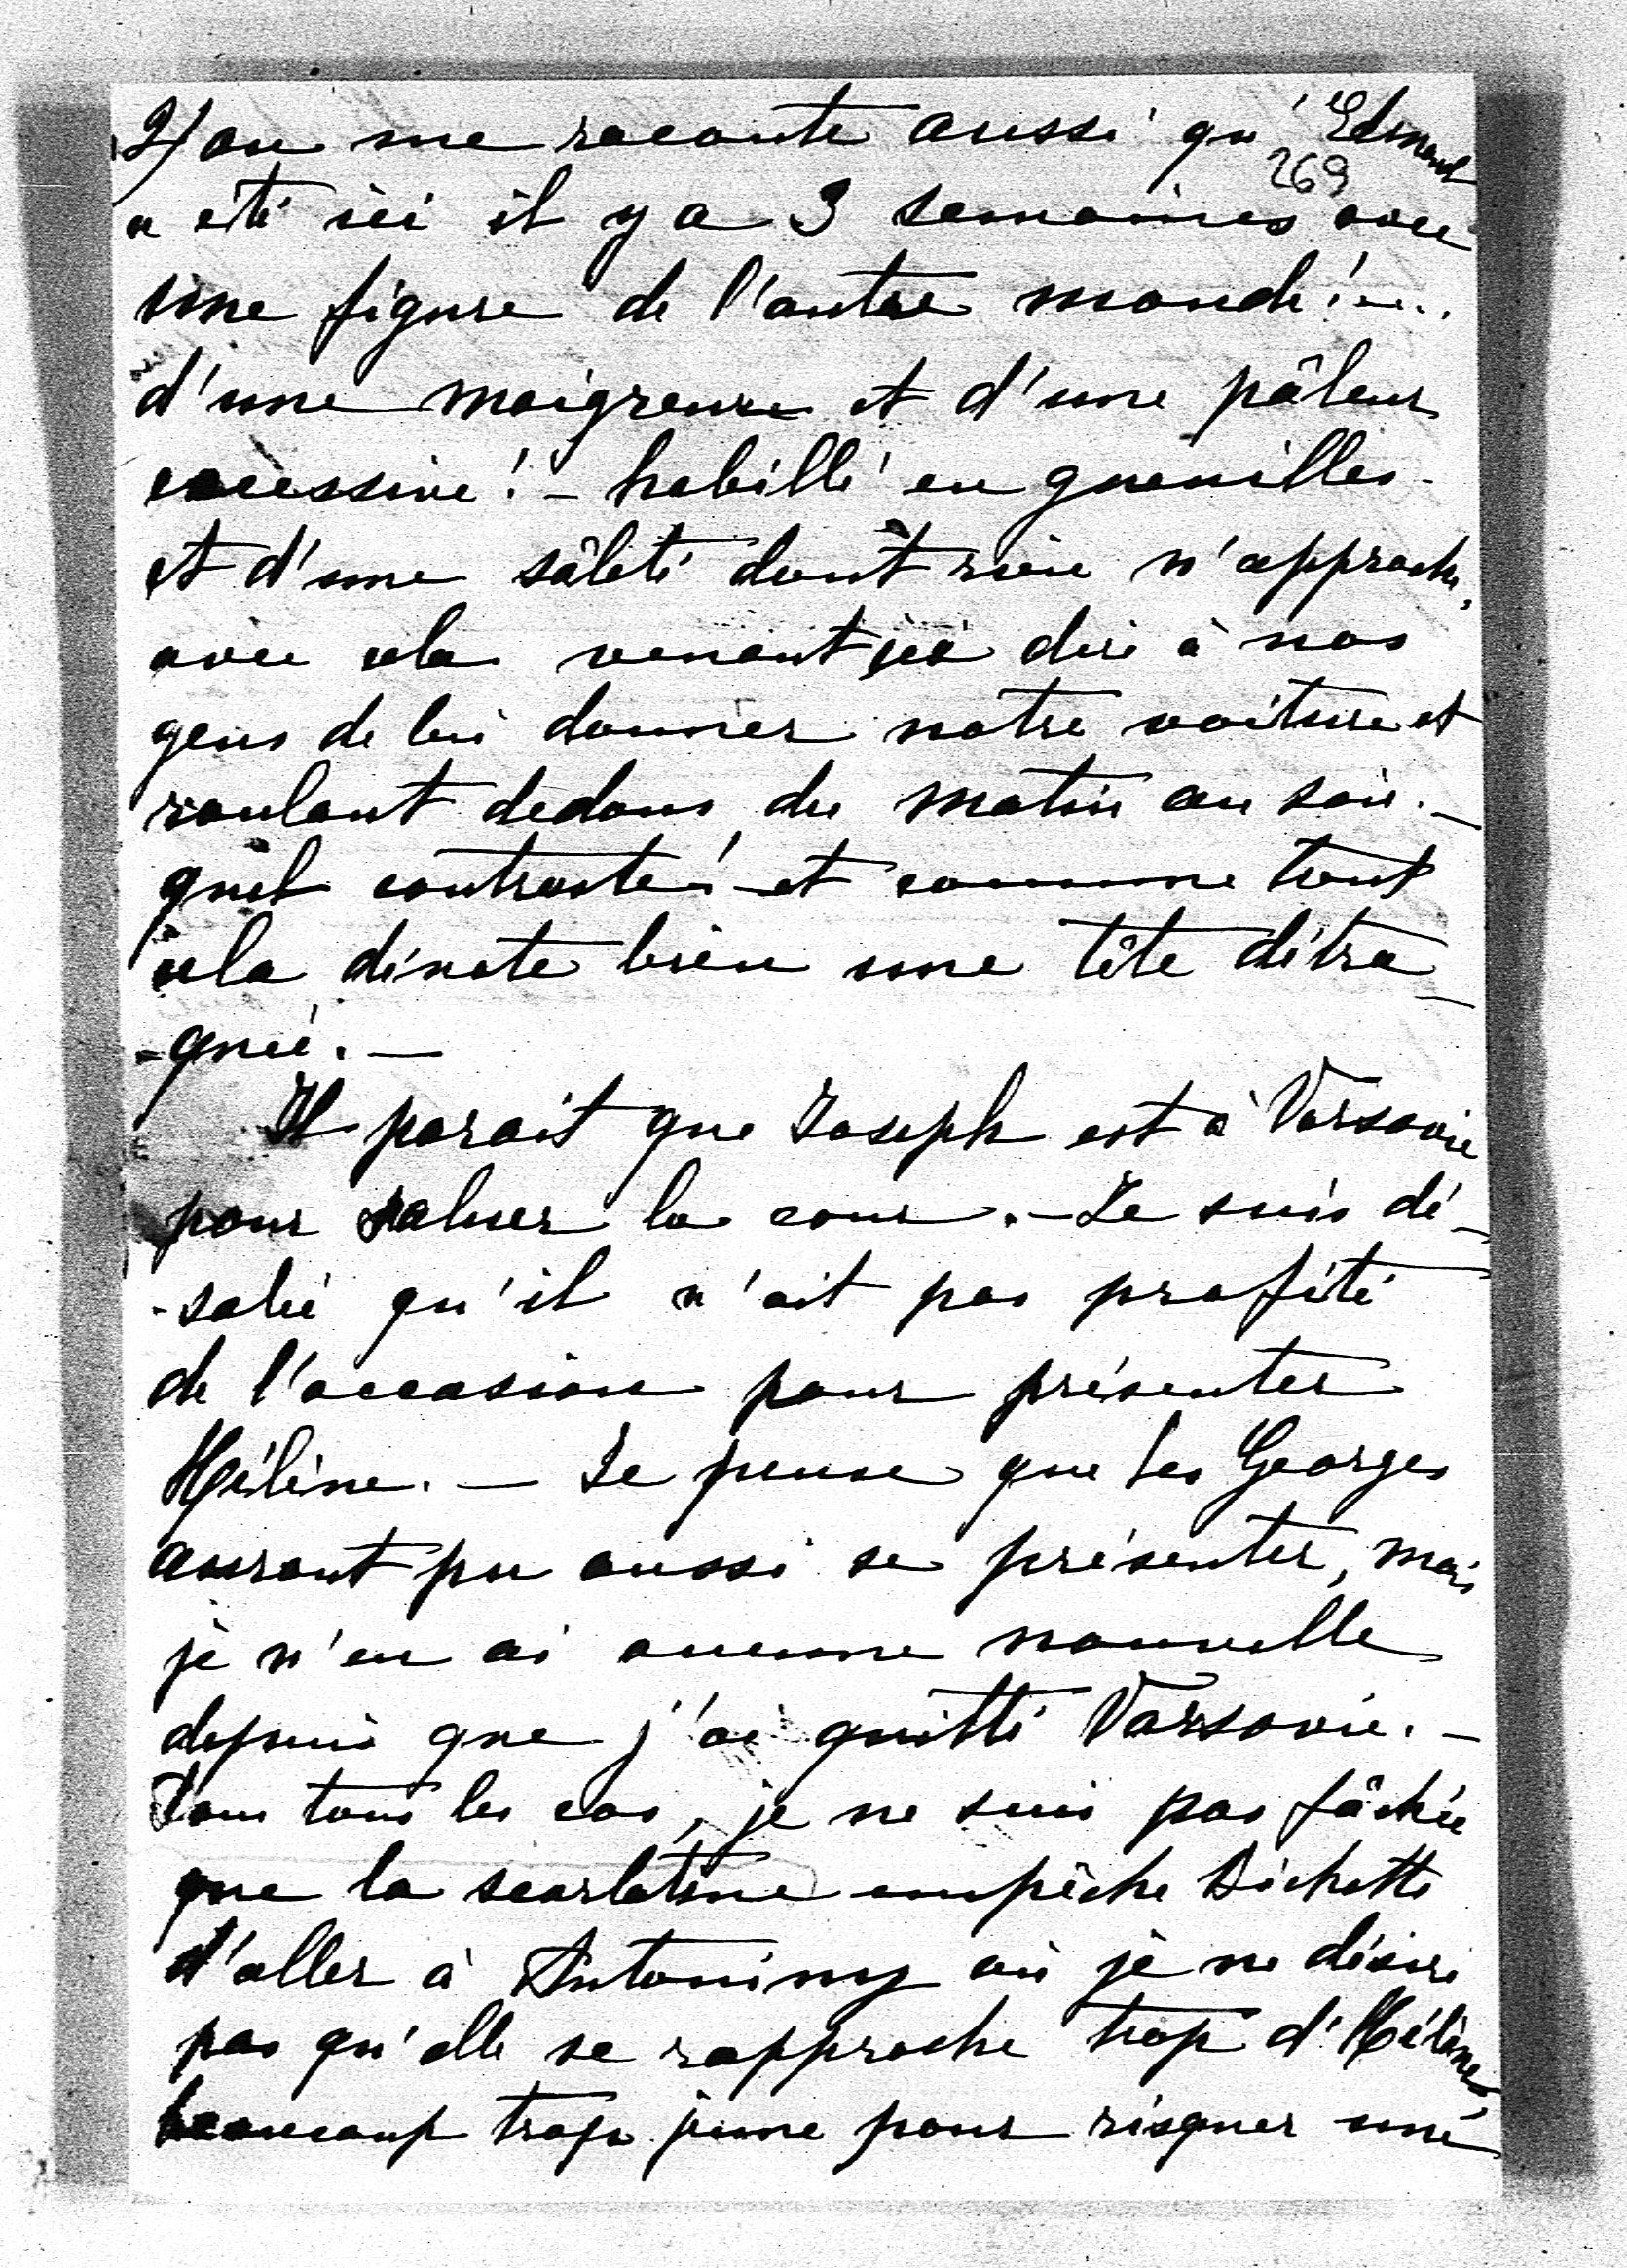 2/ on me raconte aussi qu'Edmond
269
a été ici il y a 3 semaines avec
une figure de l'autre monde!...
d'une maigreur et d'une pâleur
excessive! - habillé en guenilles
et d'une sâleté dont rien n'approche,
avec cela venant ici dire à nos
gens de lui donner notre voiture et
roulant dedans du matin au soir. —
quel contraste! et comme tout
cela dénote bien une tête détra-
-quée. —
Il parait que Joseph est à Varsovie
pour saluer la cour. - Je suis dé-
-solée qu'il n'ait pas profité
de l'occasion pour présenter
Hélène. — Je pense que les Georges
auront pu aussi se présenter, mais
je n'en ai aucune nouvelle
depuis que j'ai quitté Varsovie. -
Dans tous les cas, je ne suis pas fâchée
que la scarlatine empêche Bichette
d'aller à Antoniny où je ne désire
pas qu'elle se rapproche trop d'Hélène,
beaucoup trop jeune pour risquer une